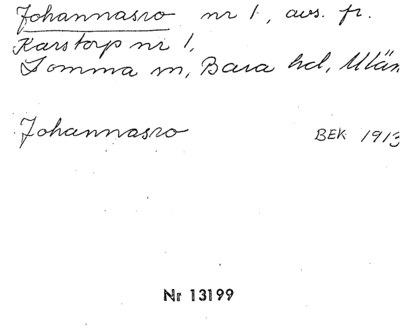 Johannasro nr 1, avs. fr.
Karstorp nr 1,
Lomma sn, Bara hd, Mlän
Johannasro BEK 1913
Nr 13199